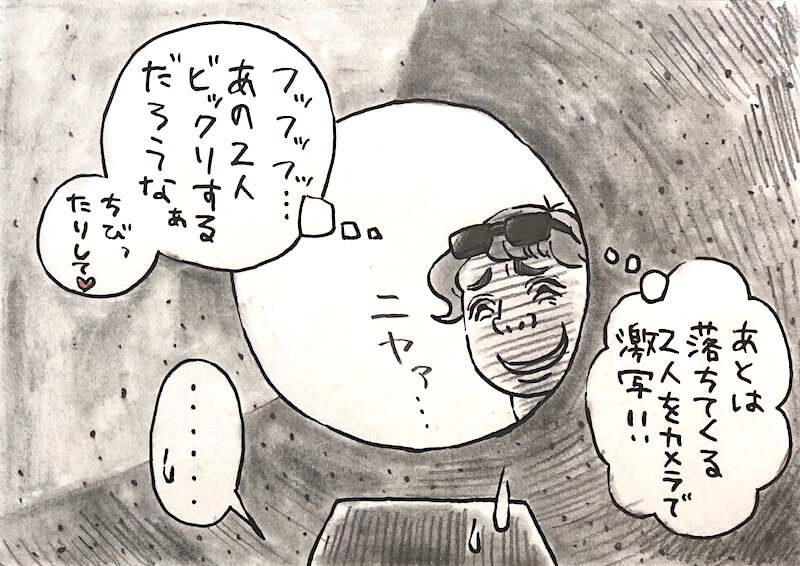 フッフッフッ…
あの2人
ビックリする
だろうなぁ
ちびっ
たりして♥
ニヤァ…
あとは
落ちてくる
2人をカメラで
激写!!
……